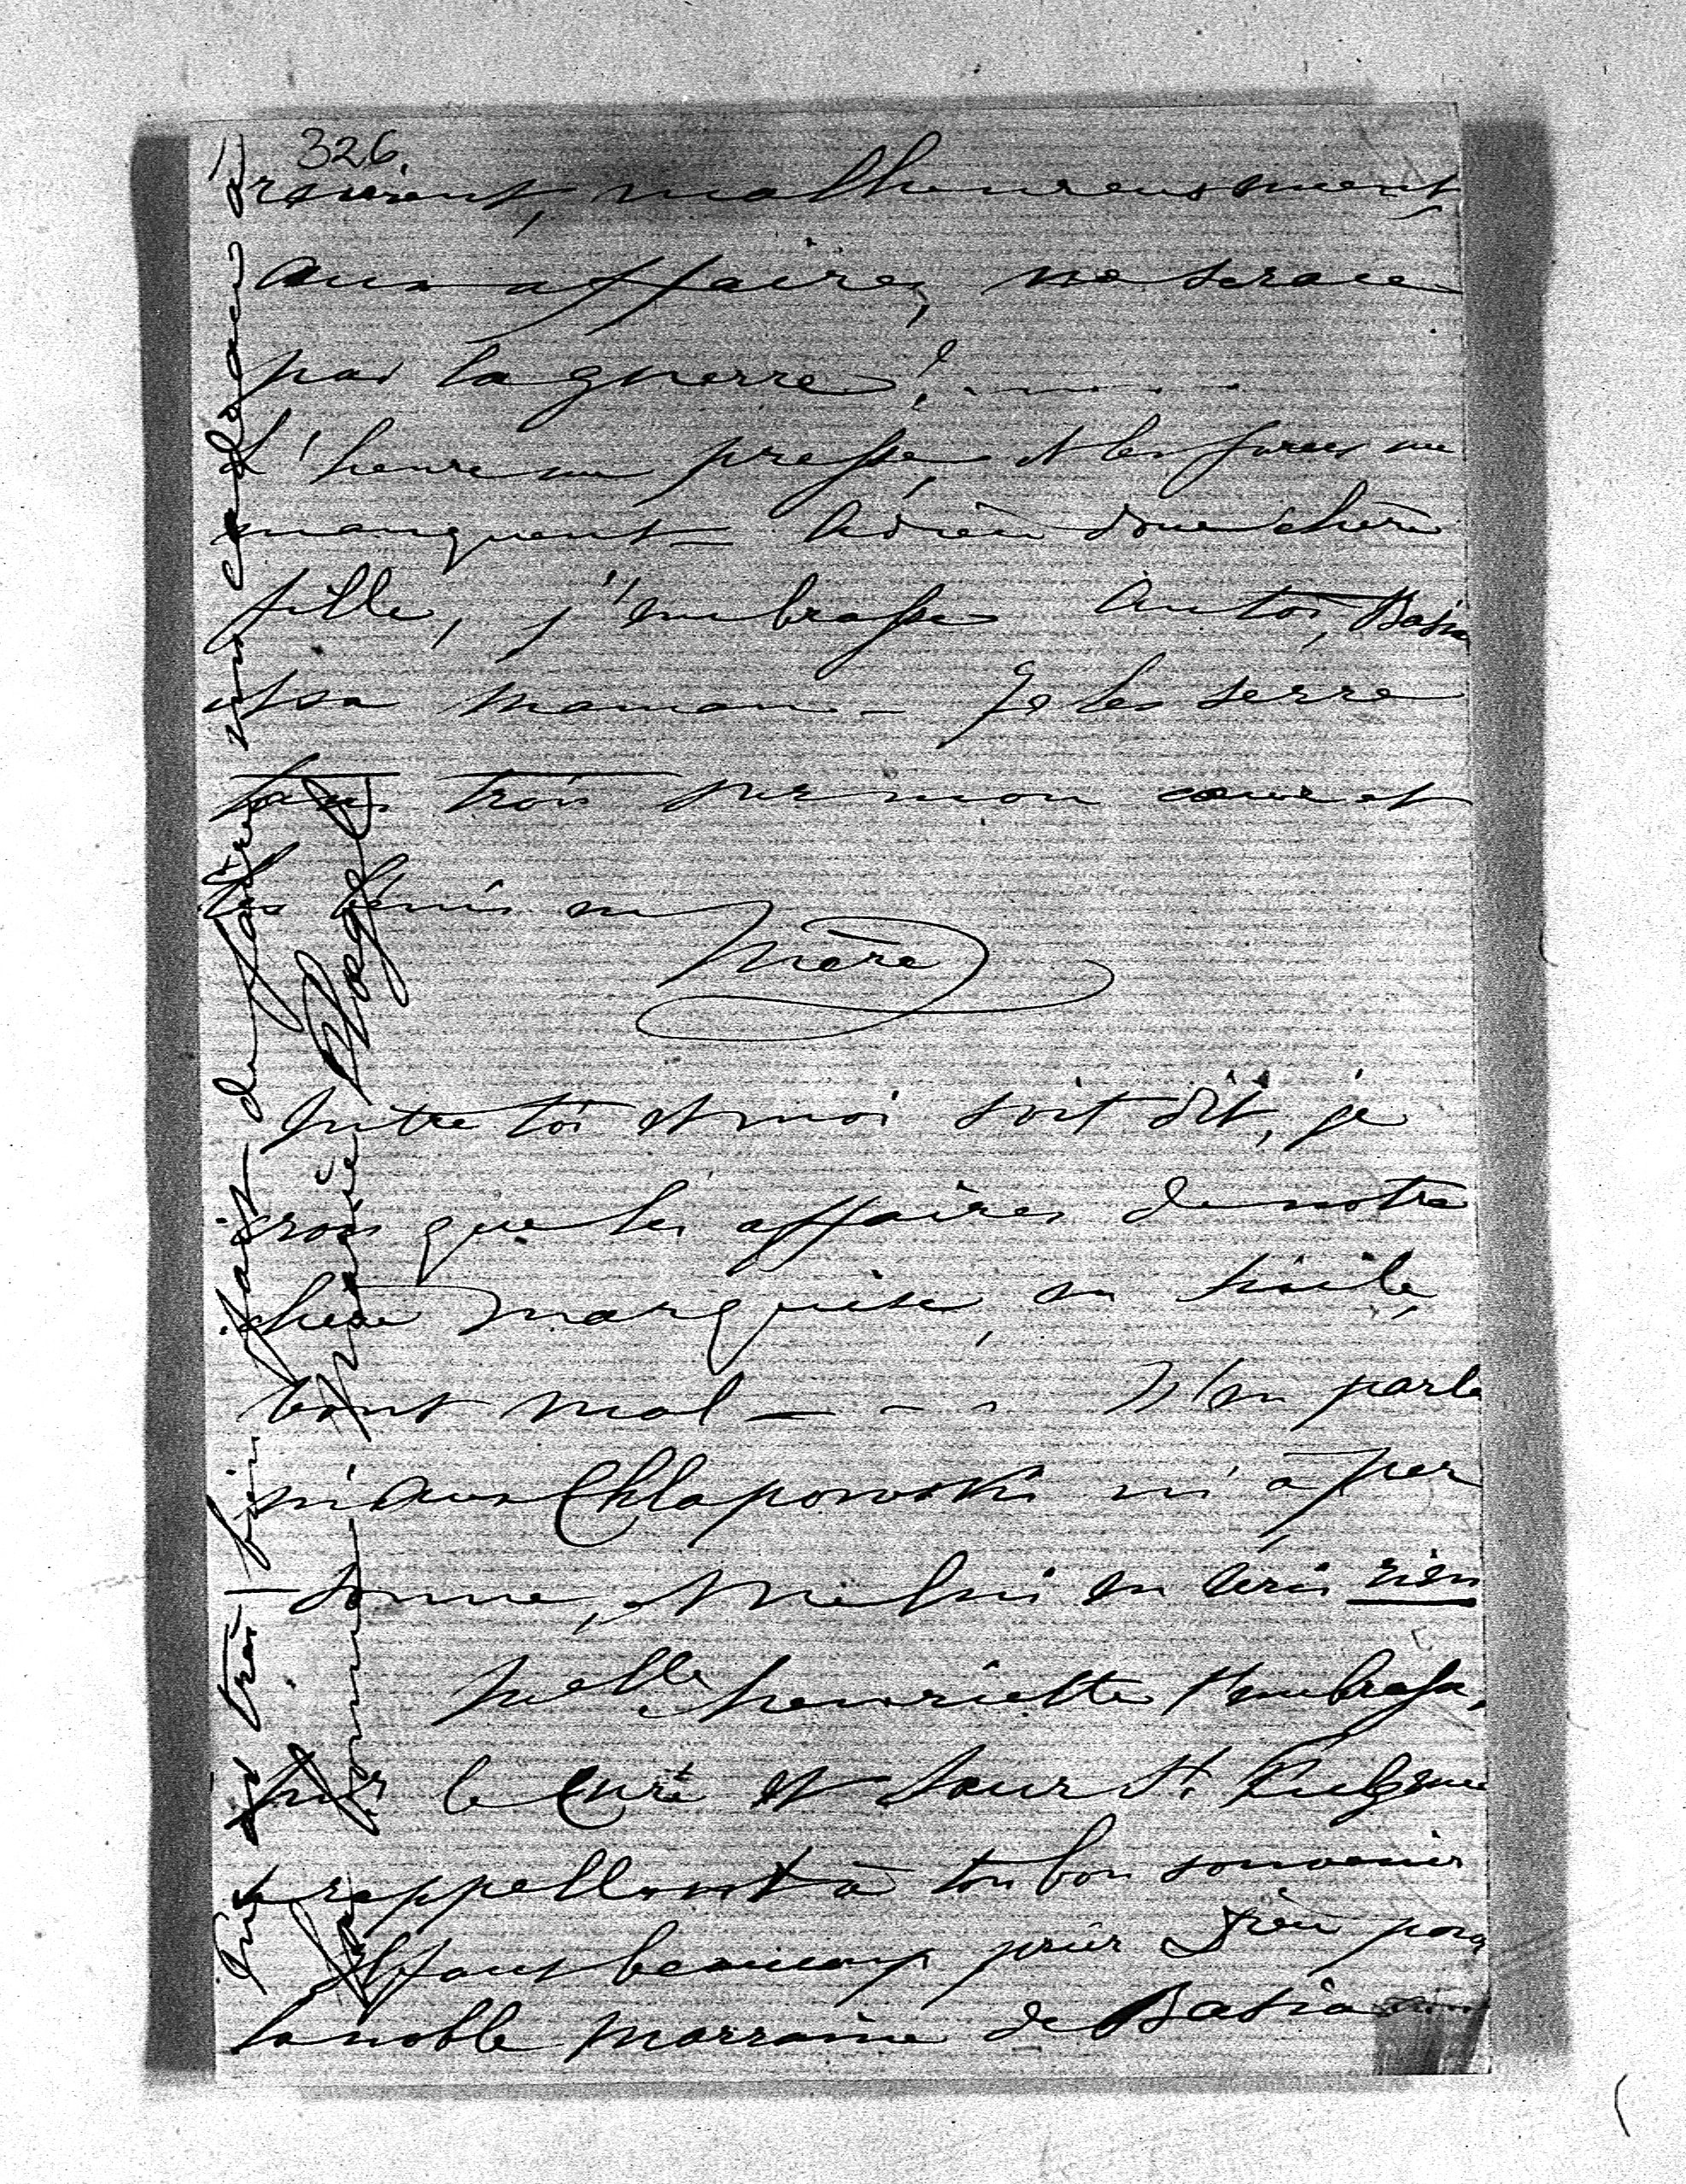 1) 326.
revient, malheureusement
aux affaires, ne sera ce
pas la guerre! . . . . .
L'heure me presse et les forces me
manquent — Adieu donc chère
fille, j'embrasse Antoi, Basia
et sa maman — Je les serre
tous trois sur mon cœur et
les bénis en
Mère
Entre toi et moi soit dit, je
crois que les affaires de notre
chère marquise, en
vont mal — - - N'en parle
ni aux Chlapowski ni à per
sonne, et ne lui en écris rien
Melle Henriette t'embrasse,
le Curé et Sœur St
se rappellent à ton bon souvenir
Il faut beaucoup prier Dieu pour
la noble marraine de Basia
très bien fait de faire
un cadeau à